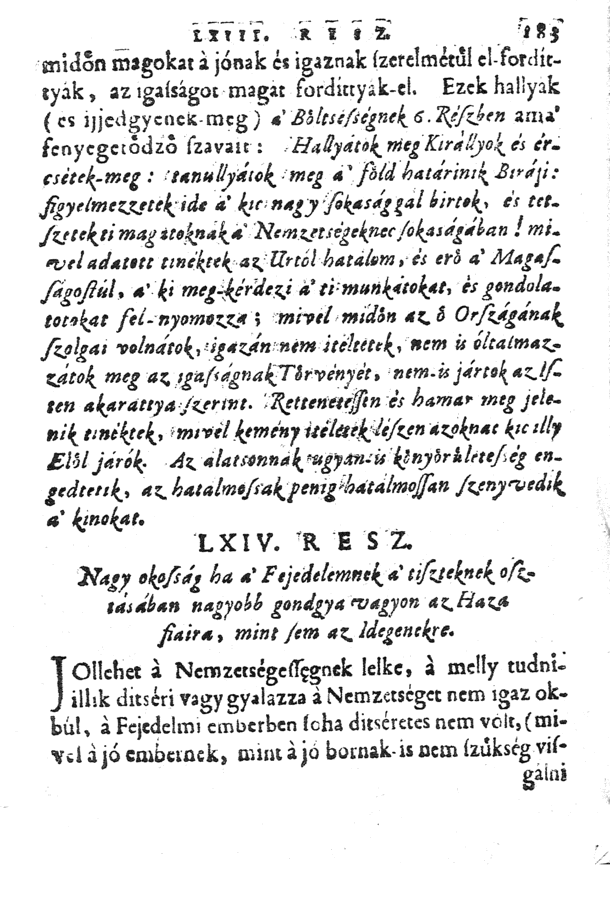 LXIII. RESZ. 183
midőn magokat à jónak és igaznak ſzerelmétűl el-fordít-
tyák, az igaſságot magát fordíttyák-el. Ezek hallyák
(és ijjedgyenek-meg) a' Bőltseſségnek 6. Réſzben ama'
fenyegetődző ſzavait: Hallyátok meg Királlyok és ér-
csétek-meg: tanullyátok meg a' főld határinik Biráji:
figyelmezzetek ide a' kic nagy ſokasággal birtok, és tet-
ſzetek ti magatoknak a' Nemzetségeknec ſokaságában! mi-
vel adatott tinéktek az Urtól hatalom, és erő a' Magaſ-
ſágoſtúl, a' ki meg-kérdezi a' ti munkátokat, és gondola-
totokat fel-nyomozza; mivel midőn az ő Orſzágának
ſzolgai volnátok, igazán nem itéltetek, nem is óltalmaz-
zátok meg az igaſságnak Tőrvényét, nem-is jártok az Iſ-
ten akarattya ſzerint. Rettenetesſen és hamar meg jele-
nik tinéktek, mivel kemény itéletek léſzen azoknac kic illy
Elől járók. Az alatsonnak ugyan-is kőnyőrűleteſség en-
gedtetik, az hatalmoſsak penig hatalmoſſan ſzenyvedik
a' kinokat.
LXIV. RESZ.
Nagy okoſság ha a' Fejedelemnek a' tiſzteknek oſz-
tásában nagyobb gondgya vagyon az Haza
fiaira, mint ſem az Idegenekre.
JOllehet à Nemzetségeſſęgnek lelke, à melly tudni-
illik ditséri vagy gyalazza à Nemzetséget nem igaz ok-
búl, à Fejedelmi emberben ſoha ditséretes nem vólt, (mi-
vel à jó embernek, mint à jó bornak-is nem ſzűkség viſ-
gálni